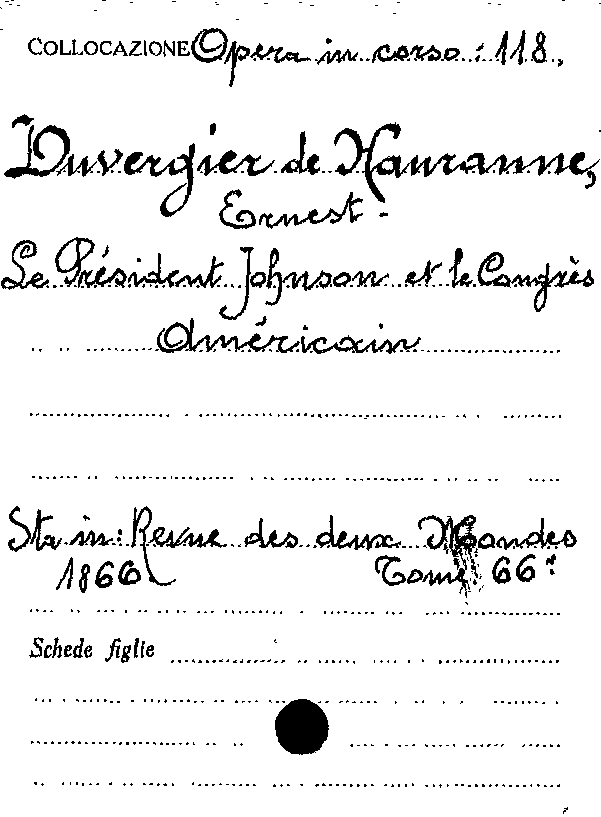 COLLOCAZIONE Opera in corso: 118.
Duvergier de Hauranne,
Ernest -
Le Président Johnson et le Congrès
Américain
Sta in: Revue des deux Mondes
1866 Tome 66º
Schede figlie